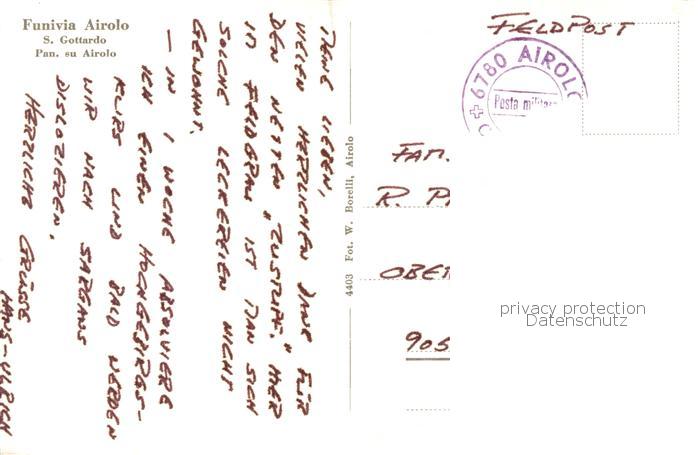 Funivia Airolo
S. Gottardo
Pan. su Airolo
MEINE LIEBEN,
VIELEN HERZLICHEN DANK FÜR
DEN NETTEN "ZUSTUPF." HIER
IN FELDGRAU IST MAN SICH
SOLCHE LECKEREIEN NICHT
GEWOHNT.
— IN 1 WOCHE ABSOLVIERE
ICH EINEN HOCHGEBIRGS-
KURS UND BALD WERDEN
WIR NACH SARGANS
DISLOZIEREN.
HERZLICHE GRÜSSE
HANS-ULRICH
4403 Fot. W. Borelli, Airolo
FELDPOST
6780 AIROLO
Posta milita
FAM.
R. P
OBE
905
privacy protection
Datenschutz